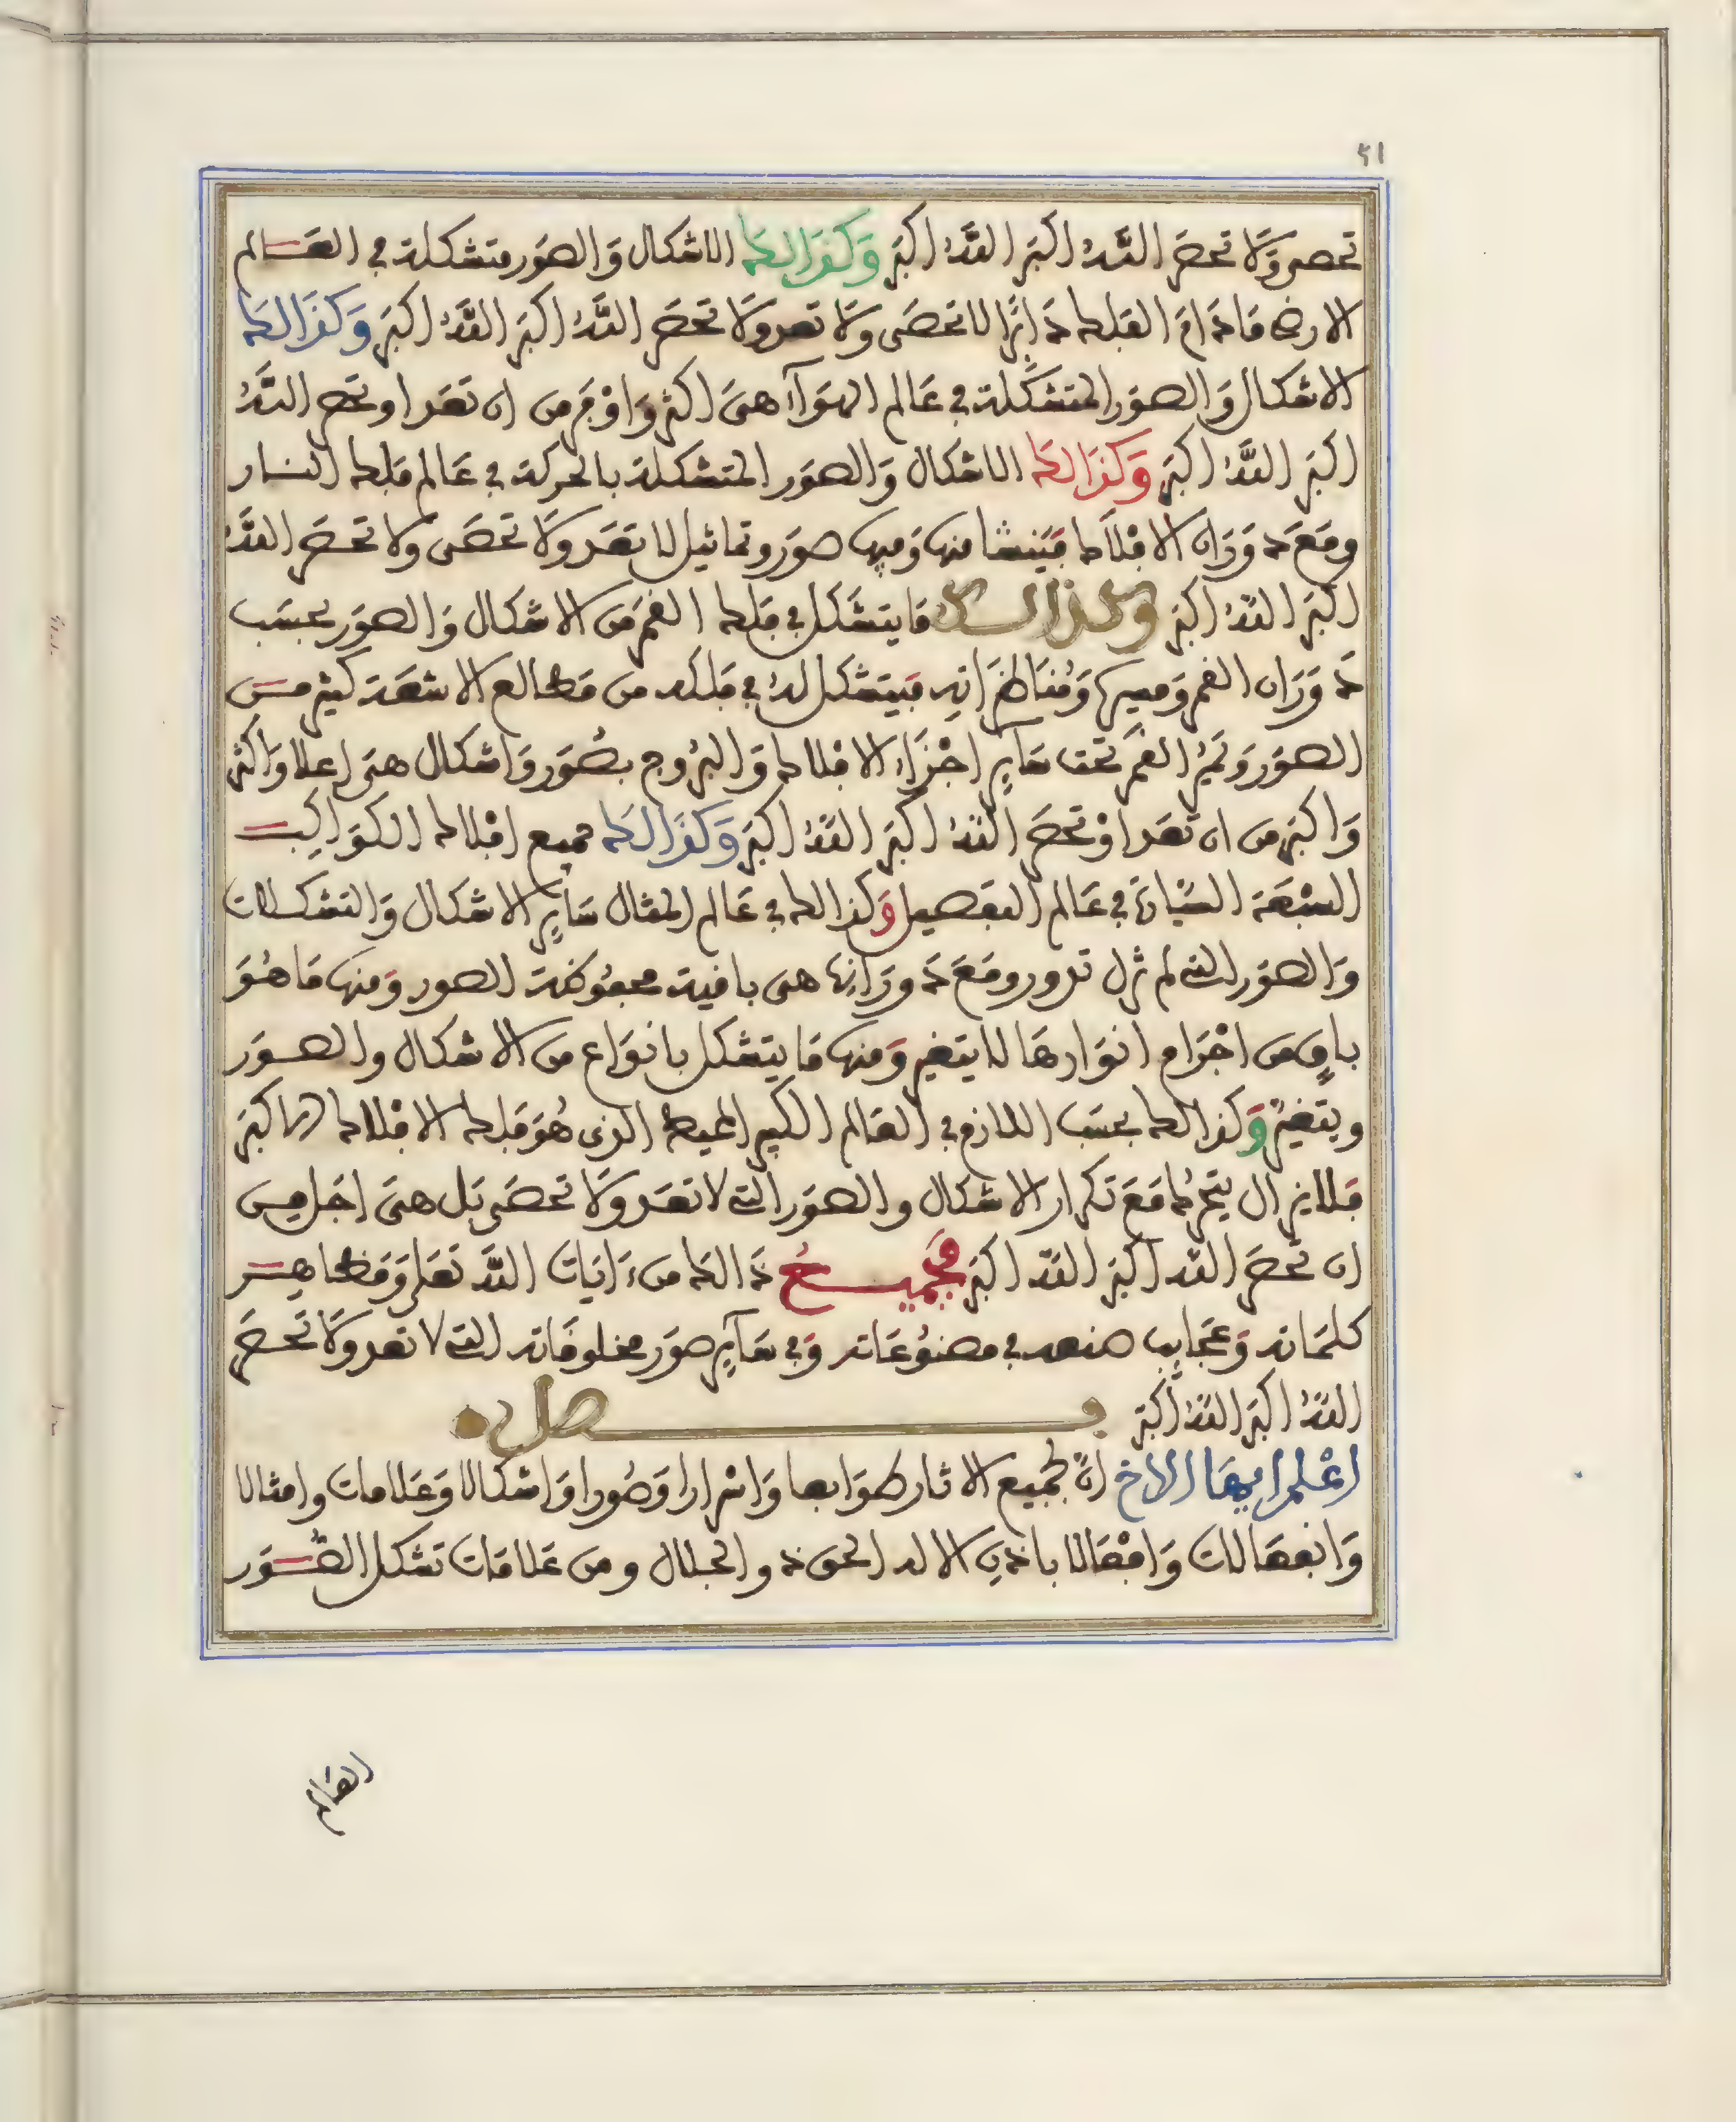 51
تحصى وَلَا تحصَر اللَّهُ اكبَر اللَّهُ اكبَر وَكَذَالك الاشكال وَالصوَر متشكلة في العَالم
الارض مَا دَامَ الفلك دَائرًا لا تحصَى وَلَا تعد ولَا تحصَر اللَّهُ اكبَر اللَّهُ اكبَر وَكَذَالك
الاشكال وَالصوَر المتشكّلة في عَالم الهوَآ هىَ اكثر وَاوْفر من ان تعَد او تحصر اللَّهُ
اكبَر اللَّهُ اكبَر وَكَذَالك الاشكال وَالصوَر المتشكلة بالحركة في عَالم فلك النار
ومَعَ دَوَرَان الافْلَاك فيَنشا منها وَفيها صوَر وتماثيل لا تعَد ولَا تحصَى ولا تحصَر اللَّهُ
اكبَر اللهُ اكبَر وكذالك مَا يتشكل في فلك القمَر من الاشكال وَالصوَر بحسَب
دَوَرَان القمر ومسيرها وَمُنَاظرَاته فيَتشكل لهُ في فلكه من مَطالع الاشعَة كثير من
الصوَر وَتميُّز القمَر تحت سَآير اجْزَاء الافلاك وَالبرُوج بصُوَر وَاشكال هىَ اعلا وَاكثر
وَاكبَر من ان تعَد اوْ تحصَر اللهُ اكبَر اللهُ اكبَر وَكَذَالك جميع افْلاك الكوَاكب
السّبْعَة السّيَّارة في عَالم التفصيل وَكذالك في عَالم المثال سَآير الاشكال وَالتشكلات
وَالصوَر التى لم تزل تدور ومَعَ دَوَرَانها هى باقية محفوظة الصور وَمنها مَا هُوَ
باقٍ من اجْرَام انوَارهَا لا يتغير وَمنها مَا يتشكل بانوَاع من الاشكال والصوَر
ويتغيّرُ وَكذالك بحسَب اللازم في العَالم الكبير المحيط الذى هُوَ فَلك الافْلاك الاكبَر
فلا يزال يتحرّك مَعَ تكرَار الاشكال والصوَر التى لا تعَد ولَا تحصَى بَل هىَ اجَل من
ان تحصَر الله اكبَر اللهُ اكبَر فَجَميعُ ذَالك من ءَايات اللَّه تعَلى وَمَظاهر
كلمَاته وَعَجَايب صنعه في مصنوُعَاته وَفى سَآير صوَر مخلوقَاته التى لا تعد ولَا تحصَر
اللهُ اكبَر اللهُ اكبَر فصل
اعْلم ايهَا الاخ انّ لجميع الاثار طوَابعا وَاسْرارا وَصُورا وَاشكالا وَعَلامات وامثالا
وَانفعَالات وَافْعَالا باذن الاله الحق ذو الجلال ومن عَلامَات تشكل الصُّوَر